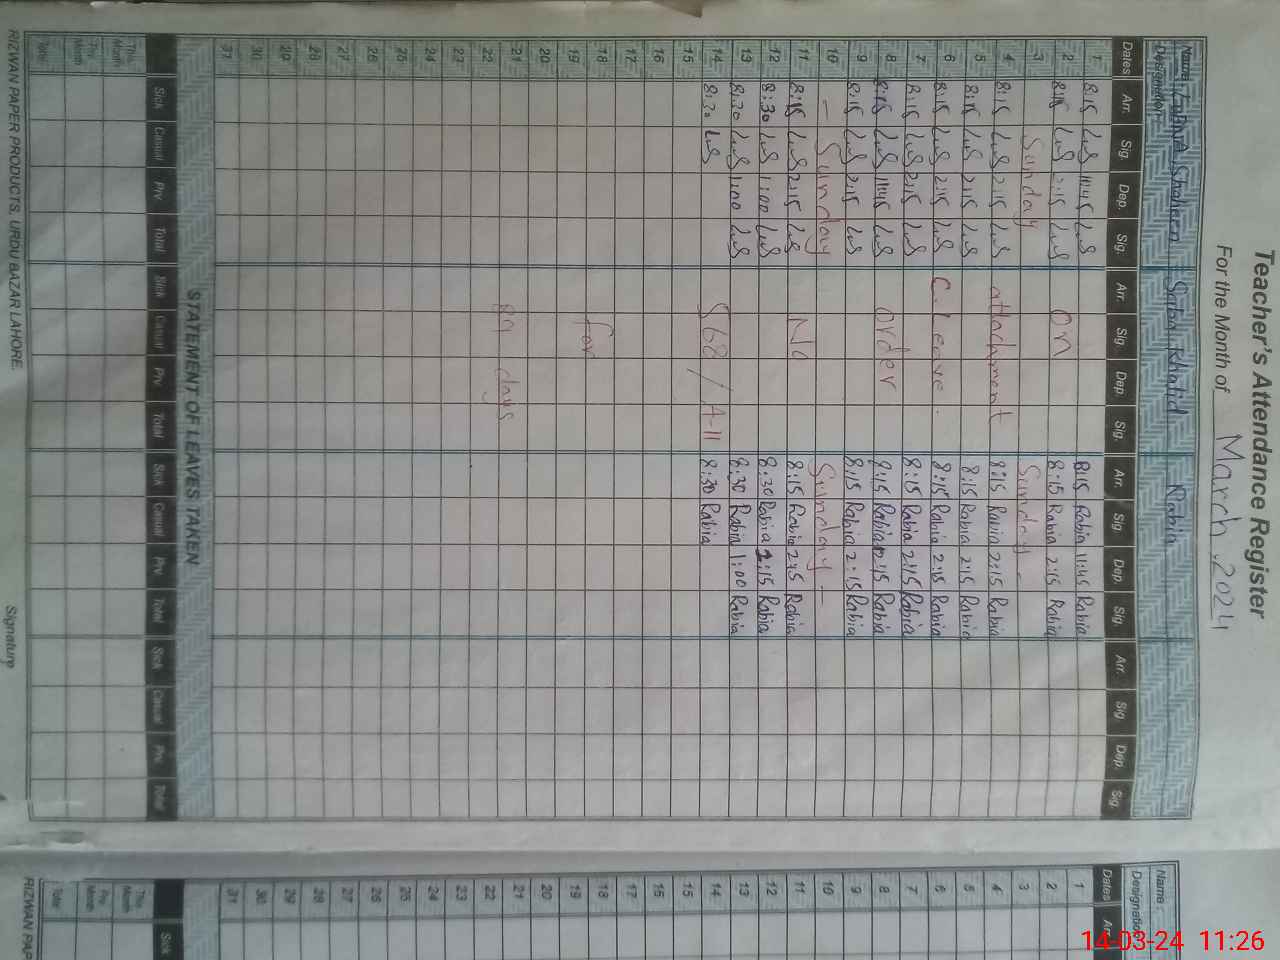 Teacher's Attendance Register
For the Month of March, 2024
Name: Lubna Shaheen Saba Khalid Rabia
Designation:
Dates Arr. Sig. Dep. Sig. Arr. Sig. Dep. Sig. Arr. Sig. Dep. Sig. Arr. Sig. Dep. Sig.
1 8:15 11:45 8:15 Rabia 11:45 Rabia
2 8:15 2:15 on 8:15 Rabia 2:15 Rabia
3 Sunday Sunday -
4 8:15 2:15 attachment 8:15 Rabia 2:15 Rabia
5 8:15 2:15 8:15 Rabia 2:15 Rabia
6 8:15 2:15 C. Leave. 8:15 Rabia 2:15 Rabia
7 8:15 2:15 8:15 Rabia 2:15 Rabia
8 8:15 11:45 order 8:15 Rabia 2:15 Rabia
9 8:15 2:15 8:15 Rabia 2:15 Rabia
10 - Sunday Sunday -
11 8:15 2:15 No 8:15 Rabia 2:15 Rabia
12 8:30 1:00 8:30 Rabia 2:15 Rabia
13 8:30 1:00 8:30 Rabia 1:00 Rabia
14 8:30 568/A-11 8:30 Rabia
15
16
17
18 for
19
20
21 89 days
22
23
24
25
26
27
28
29
30
31
STATEMENT OF LEAVES TAKEN
Sick Casual Prv. Total Sick Casual Prv. Total Sick Casual Prv. Total Sick Casual Prv. Total
This Month
Prv. Month
Total
RIZWAN PAPER PRODUCTS, URDU BAZAR LAHORE. Signature
Name :
Designation:
Dates Arr
1
2
3
4
5
6
7
8
9
10
11
12
13
14
15
16
17
18
19
20
21
22
23
24
25
26
27
28
29
30
31
Sick
This Month
Prv. Month
Total
RIZWAN PAP
14-03-24 11:26